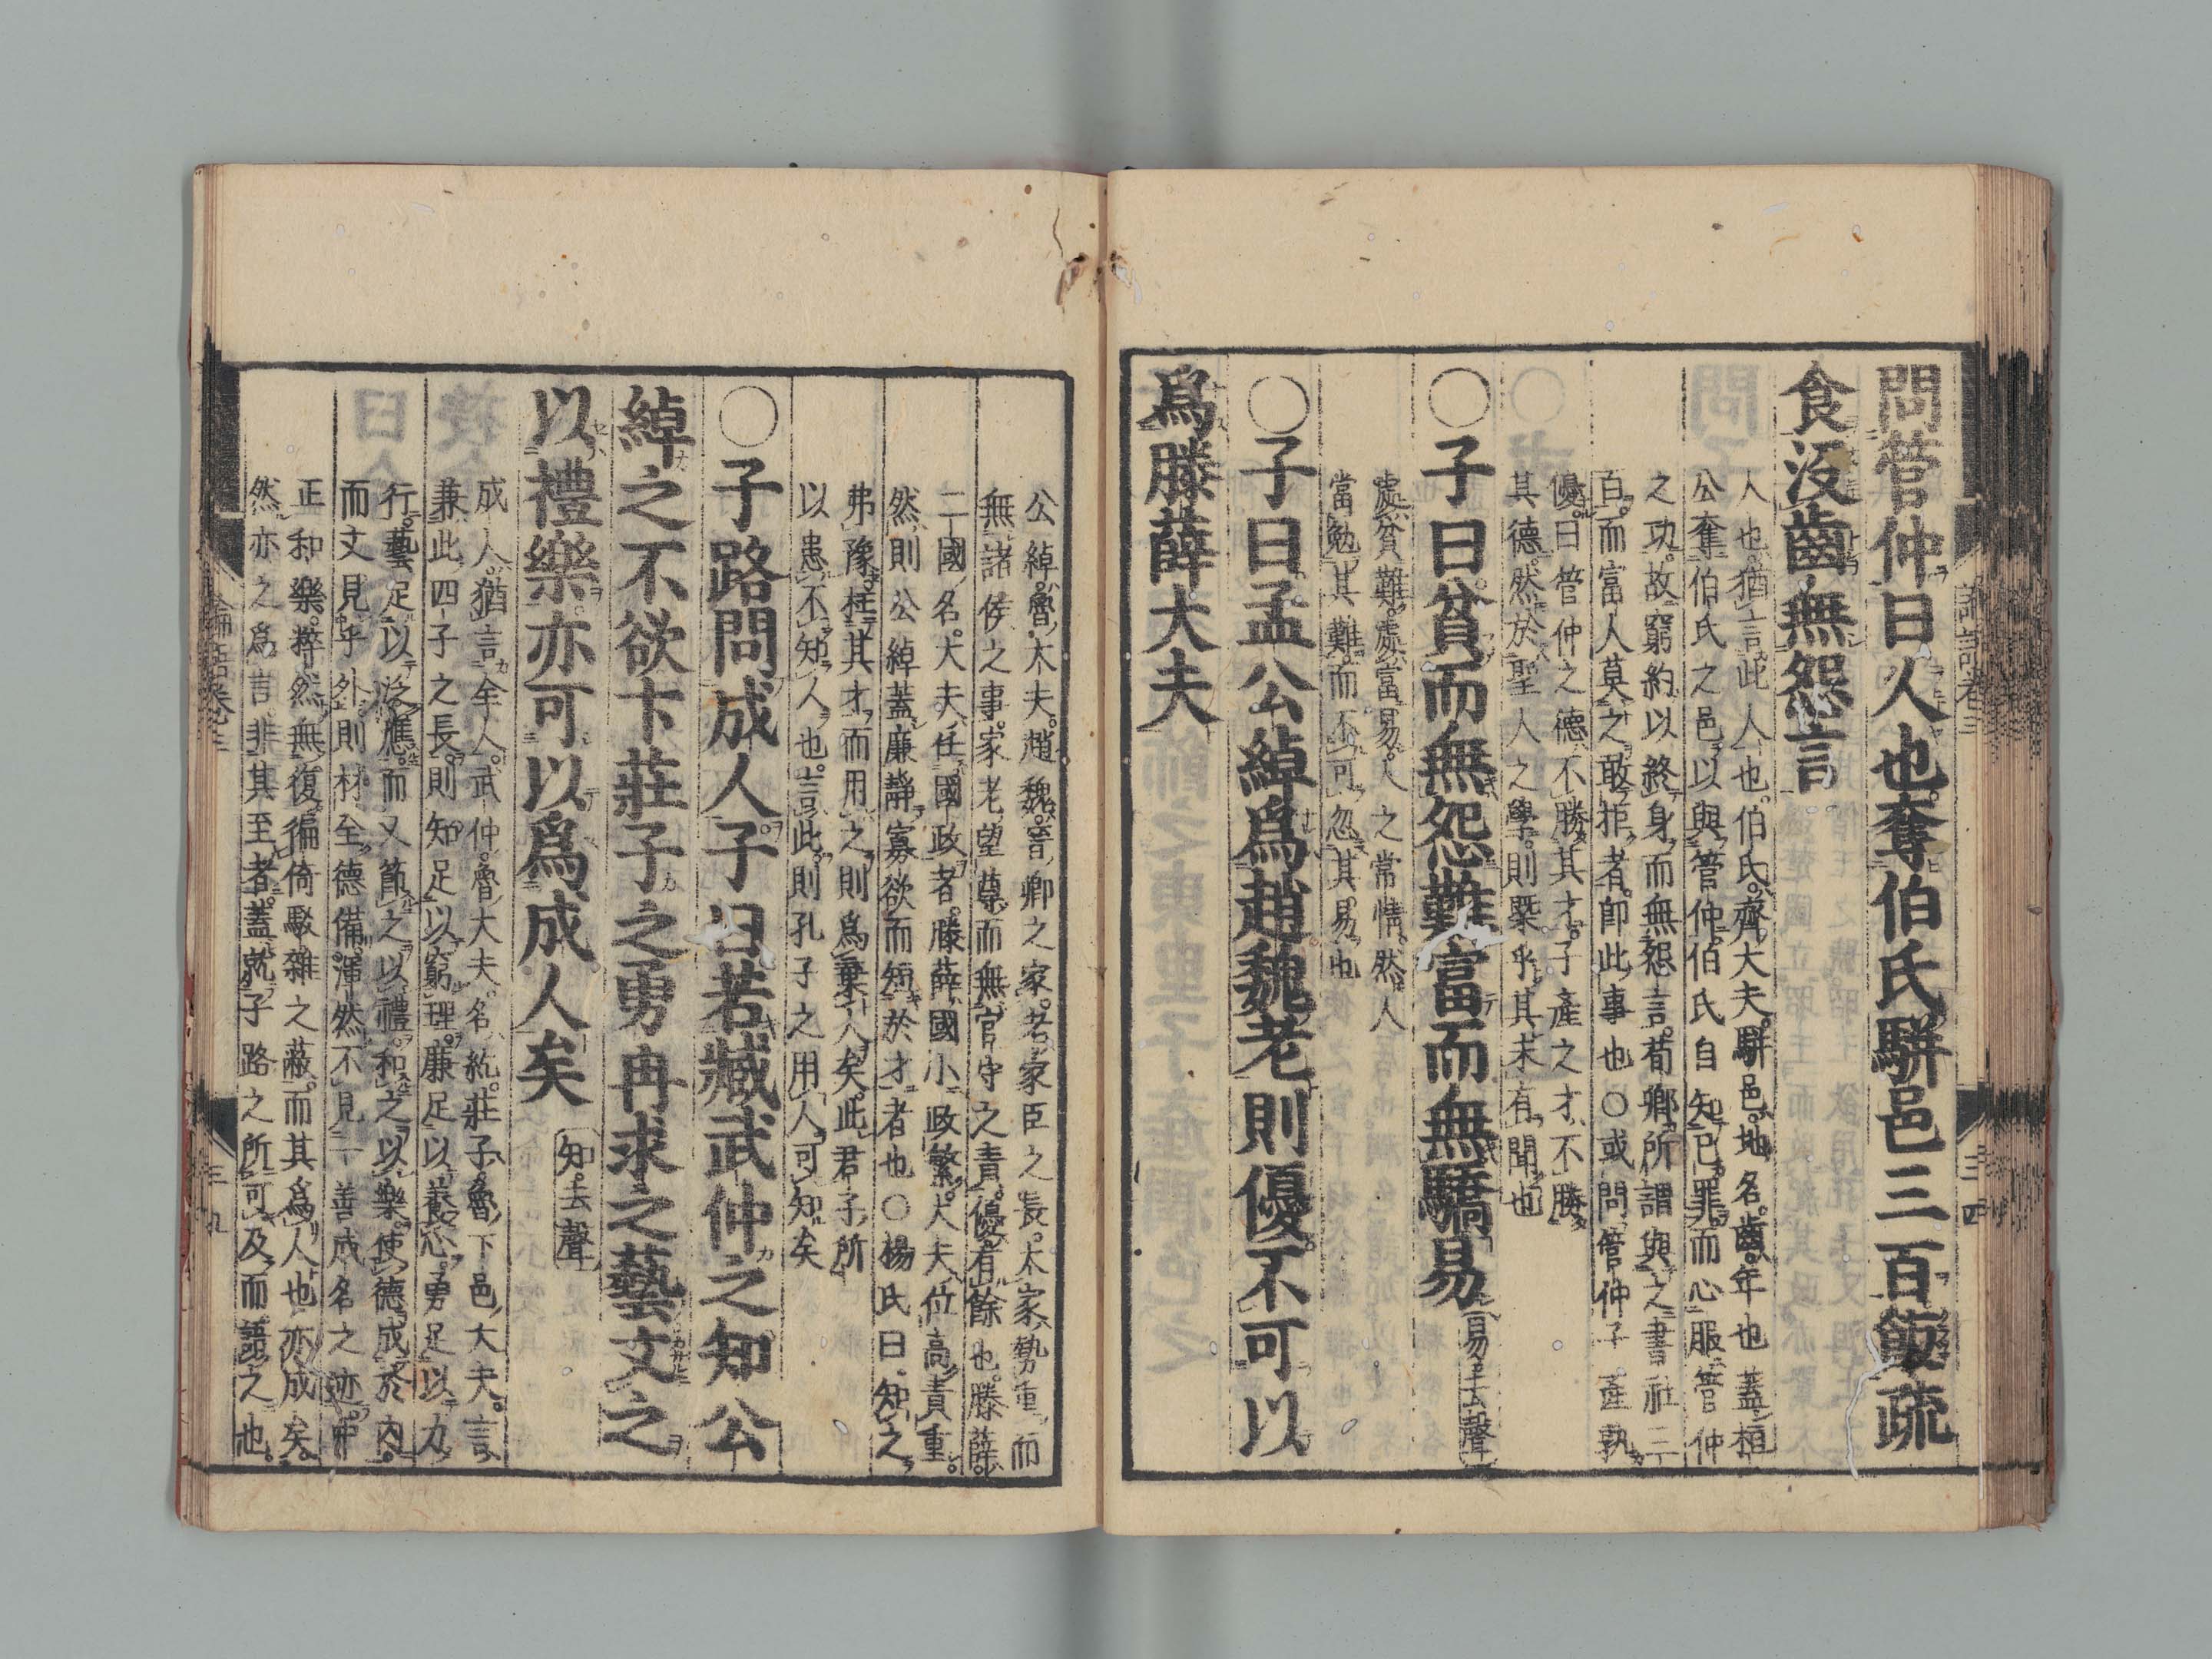 問管仲曰人也奪伯氏駢邑三百飯疏
食沒齒無怨言
人也猶言此人也伯氏齊大夫駢邑地名齒年也蓋桓
公奪伯氏之邑以與管仲伯氏自知己罪而心服管仲
之功故窮約以終身而無怨言荀卿所謂與之書社三
百而富人莫之敢拒者即此事也○或問管仲子產孰
優曰管仲之德不勝其才子產之才不勝
其德然於聖人之學則槩乎其未有聞也
○子曰貧而無怨難富而無驕易易去聲
處貧難處富易人之常情然人
當勉其難而不可忽其易也
○子曰孟公綽爲趙魏老則優不可以
爲滕薛大夫
公綽魯大夫趙魏晉卿之家老家臣之長大家勢重而
無諸侯之事家老望尊而無官守之責優有餘也滕薛
二國名大夫任國政者滕薛國小政繁大夫位高責重
然則公綽蓋廉靜寡欲而短於才者也○楊氏曰知之
弗豫枉其才而用之則爲棄人矣此君子所
以患不知人也言此則孔子之用人可知矣
○子路問成人子曰若臧武仲之知公
綽之不欲卞莊子之勇冉求之藝文之
以禮樂亦可以爲成人矣知去聲
成人猶言全人武仲魯大夫名紇莊子魯卞邑大夫言
兼此四子之長則知足以窮理廉足以養心勇足以力
行藝足以泛應而又節之以禮和之以樂使德成於內
而文見乎外則材全德備渾然不見一善成名之迹中
正和樂粹然無復偏倚駁雜之蔽而其爲人也亦成矣
然亦之爲言非其至者蓋就子路之所可及而語之也
論語卷三
三九